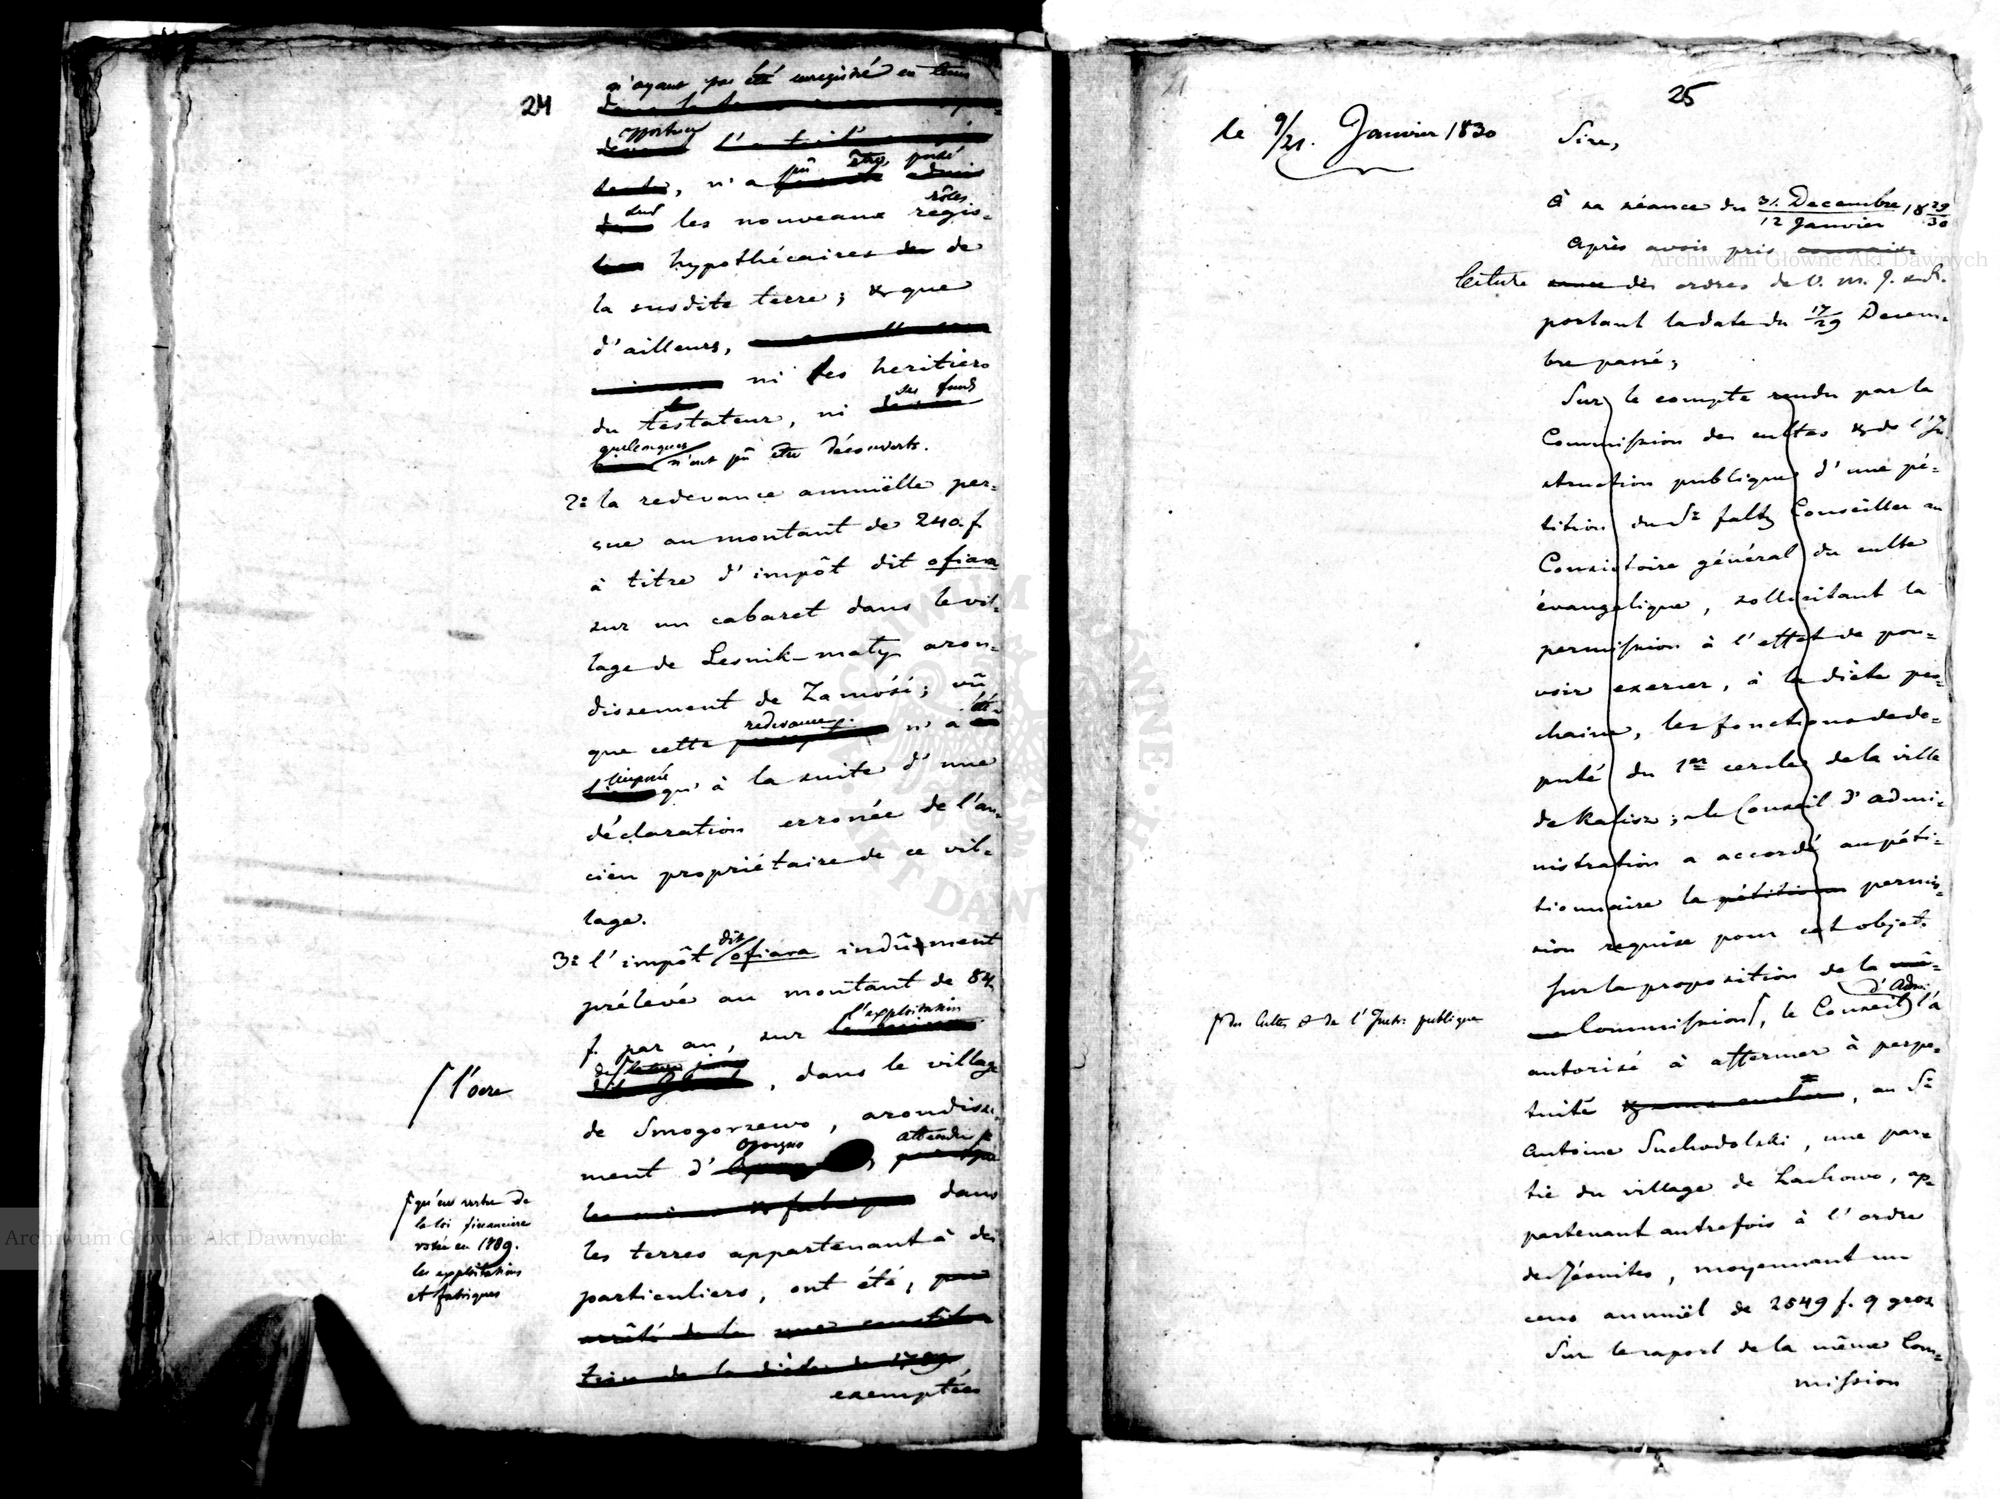 24
n'ayant pas été enregistré en tems
opportun
pû être porté
n'a
sur les nouveaux rôles
regis-
hypothécaires de
la susdite terre; & que
d'ailleurs,
ni les heritiers
du testateur, ni des fonds
quelconques n'ont pû être découverts.
2º la redevance annuëlle per-
çue au montant de 240 f.
à titre d'impôt dit ofiara
sur un cabaret dans le vil-
lage de Lesnik-maly aron-
dissement de Zamość; vû
que cette redevance n'a été
imposée qu'à la suite d'une
déclaration erronée de l'an-
cien propriétaire de ce vil-
lage.
3º l'impôt dit ofiara indûment
prélevé au montant de 84
f. par an, sur l'exploitation
de l'ocre, dans le village
de Smogorzewo, arondisse-
ment d'Opoczno, attendu
qu'en vertu de
la loi financière
votée en 1789.
les exploitations
et fabriques
dans
les terres appartenant à des
particuliers, ont été,
arrêté de la une constitu
tion de la diète de 1789,
exemptées
25
le 9/21. Janvier 1830
Sire,
À sa séance du 31. Decembre / 12 Janvier 1829/30
après avoir pris
lecture des ordres de V. M. I. & R.
portant la date du 17/29 Decem-
bre passé;
Sur le compte rendu par la
Commission des cultes & de l'In
struction publique d'une pé-
tition du Sr Faltz Conseiller au
Consistoire général du culte
évangelique, sollicitant la
permission à l'effet de pou-
voir exercer, à la diète pro-
chaine, les fonctions de dé-
puté du 1er cercle de la ville
de Kalisz; le Conseil d'admi-
nistration a accordé au péti-
tionnaire la pétition permis-
sion requise pour cet objet.
Sur la proposition de la mê-
me Commission, le Conseil d'Admi l'a
des Cultes & de l'Instr. publique
autorisé à affermer à perpé-
tuité, au Sr
Antoine Suchodolski, une par-
tie du village de Lachowo, ap-
partenant autrefois à l'ordre
des Jésuites, moyennant un
cens annuël de 2549 f. 9 gros
Sur le raport de la même Com-
mission
Archiwum Główne Akt Dawnych
Archiwum Główne Akt Dawnych